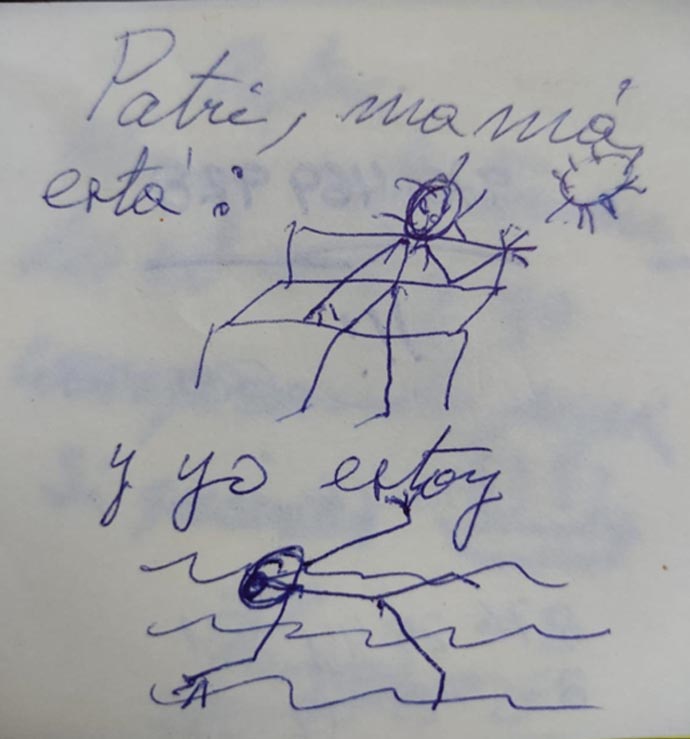 Patri, mamá
está:
y yo estoy